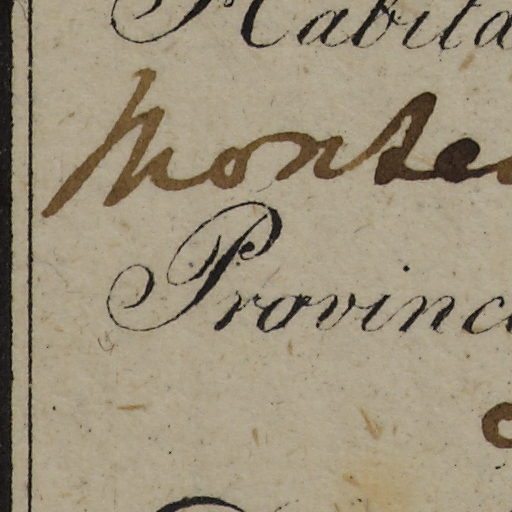 Habita
Monte
Provinc